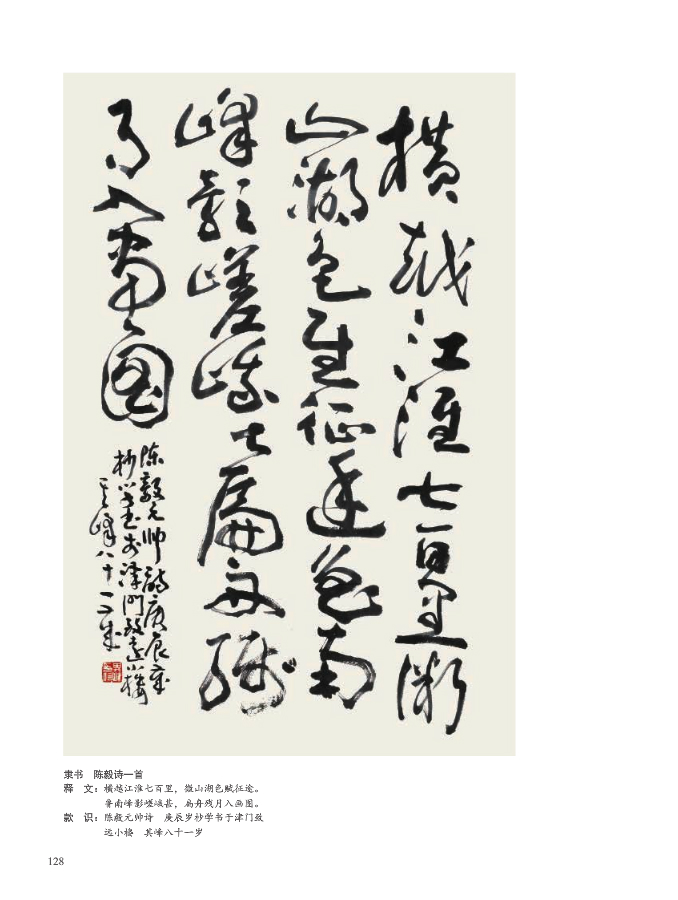 横越江淮七百里微
山湖色征途鲁南
峰影嵯峨甚扁舟残
月入畫圖
陈毅元帅诗庚辰歲
杪学书于津門致遠小樓
其峰八十一歲
隶书　陈毅诗一首
释　文：横越江淮七百里，微山湖色赋征途。
鲁南峰影嵯峨甚，扁舟残月入画图。
款　识：陈毅元帅诗　庚辰岁杪学书于津门致
远小楼　其峰八十一岁
128